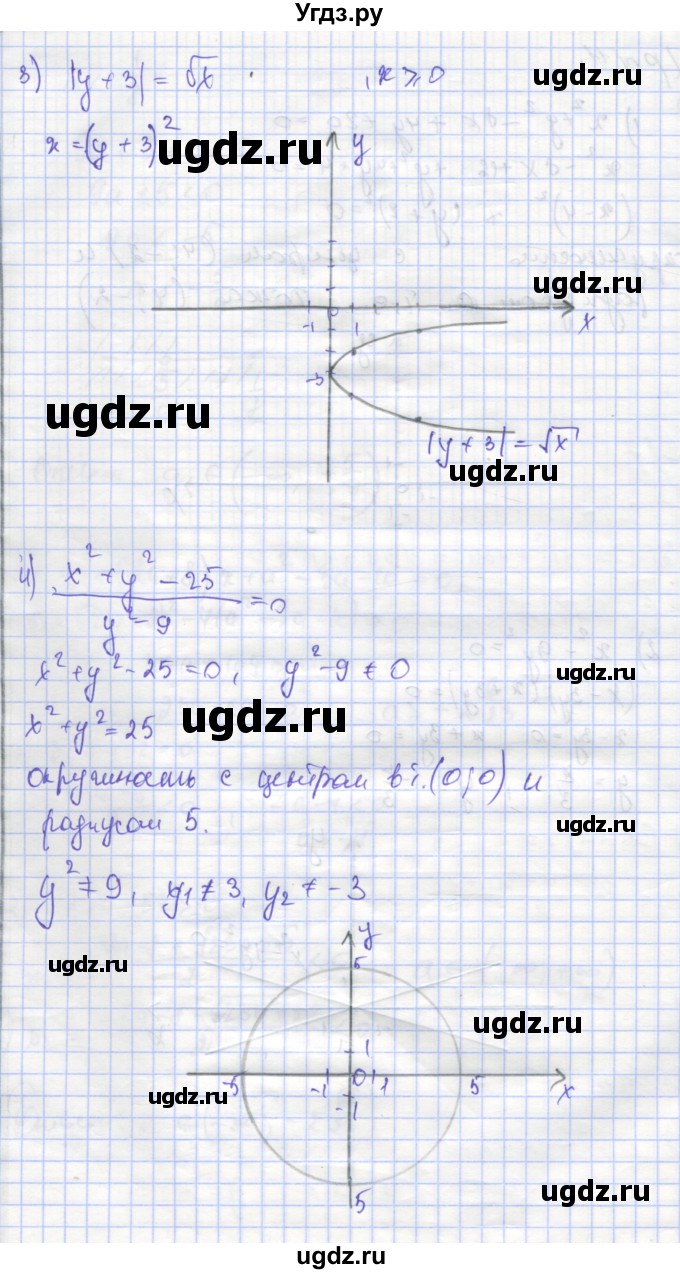 Угдз.ру
3) |y + 3| = √x , x ⩾ 0
ugdz.ru
x = (y + 3)²
ugdz.ru
y
ugdz.ru
0
-1 1 x
-3
ugdz.ru
|y + 3| = √x
ugdz.ru
4) x² + y² - 25
/ y² - 9 = 0
x² + y² - 25 = 0, y² - 9 ≠ 0
ugdz.ru
x² + y² = 25
ugdz.ru
окружность с центром в т. (0; 0) и
радиусом 5.
ugdz.ru
y² ≠ 9, y₁ ≠ 3, y₂ ≠ -3
y
ugdz.ru
5
ugdz.ru
1
-5 -1 0 1 5 x
ugdz.ru
-1
ugdz.ru
5
ugdz.ru